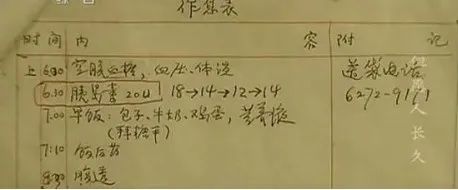 作息表
时间 内 容 附 记
上 6:30 空腹血糖，血压、体温 送餐电话
6:30 胰岛素 20u 18→14→12→14 6272-9161
7:00 早饭：包子、牛奶、鸡蛋，营养
（拜糖平）
7:10 饭后药
8:30 腹透
人长久